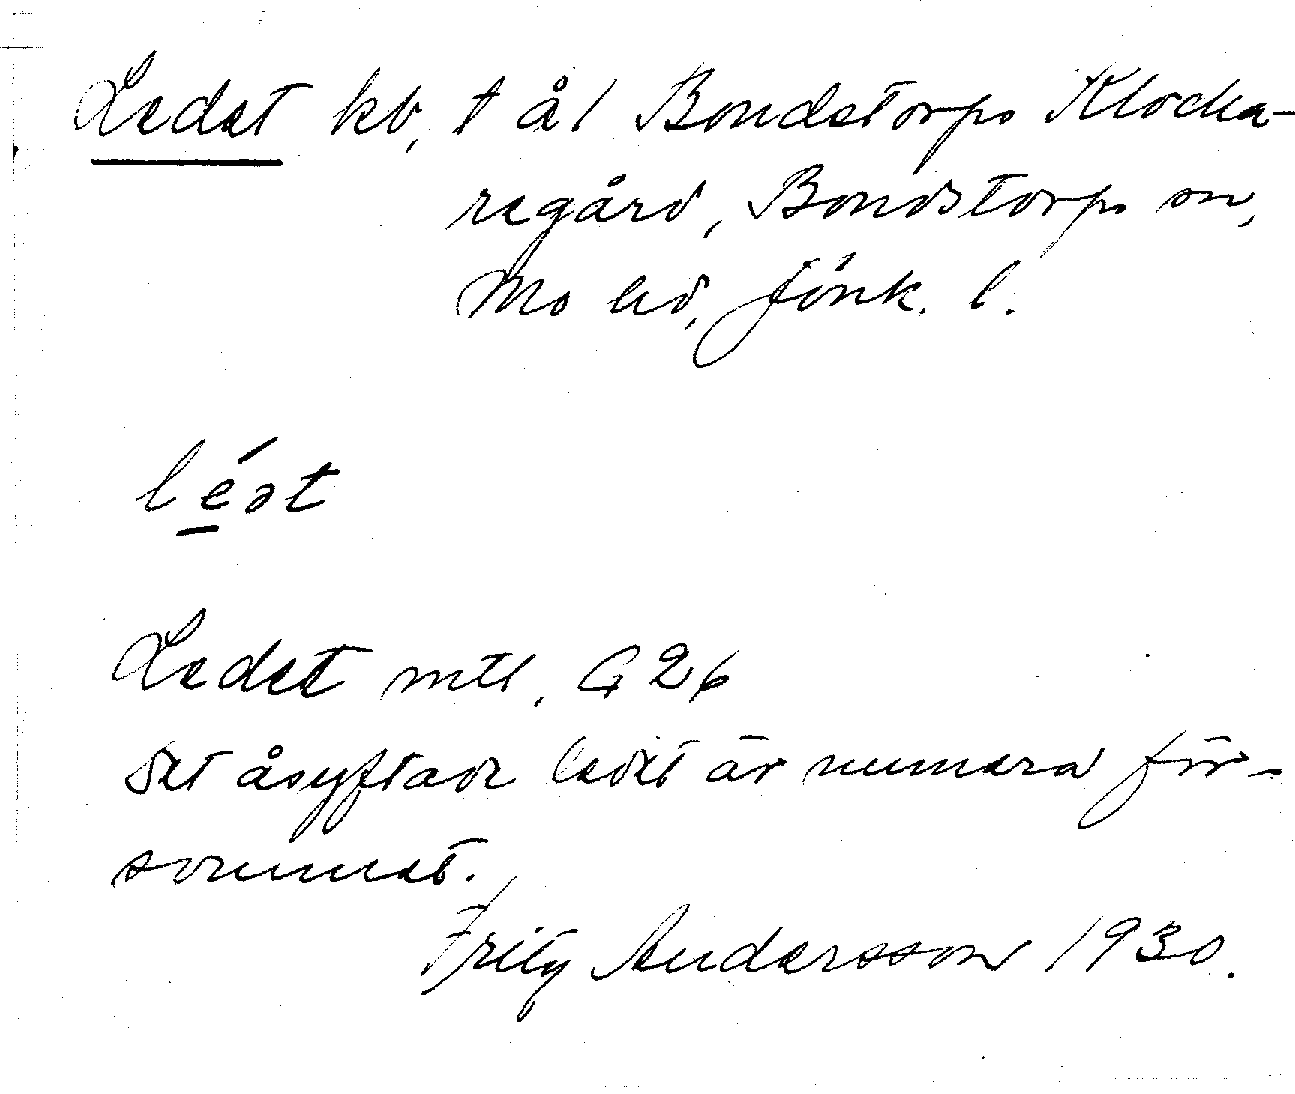 Ledet kb, t ål Bondstorps Klocka-
regård, Bondstorps sn,
Mo hd, Jönk. l.
léət
Ledet mtl. G 26
Det åsyftade ledet är numera för-
svunnet.
Fritz Andersson 1930.